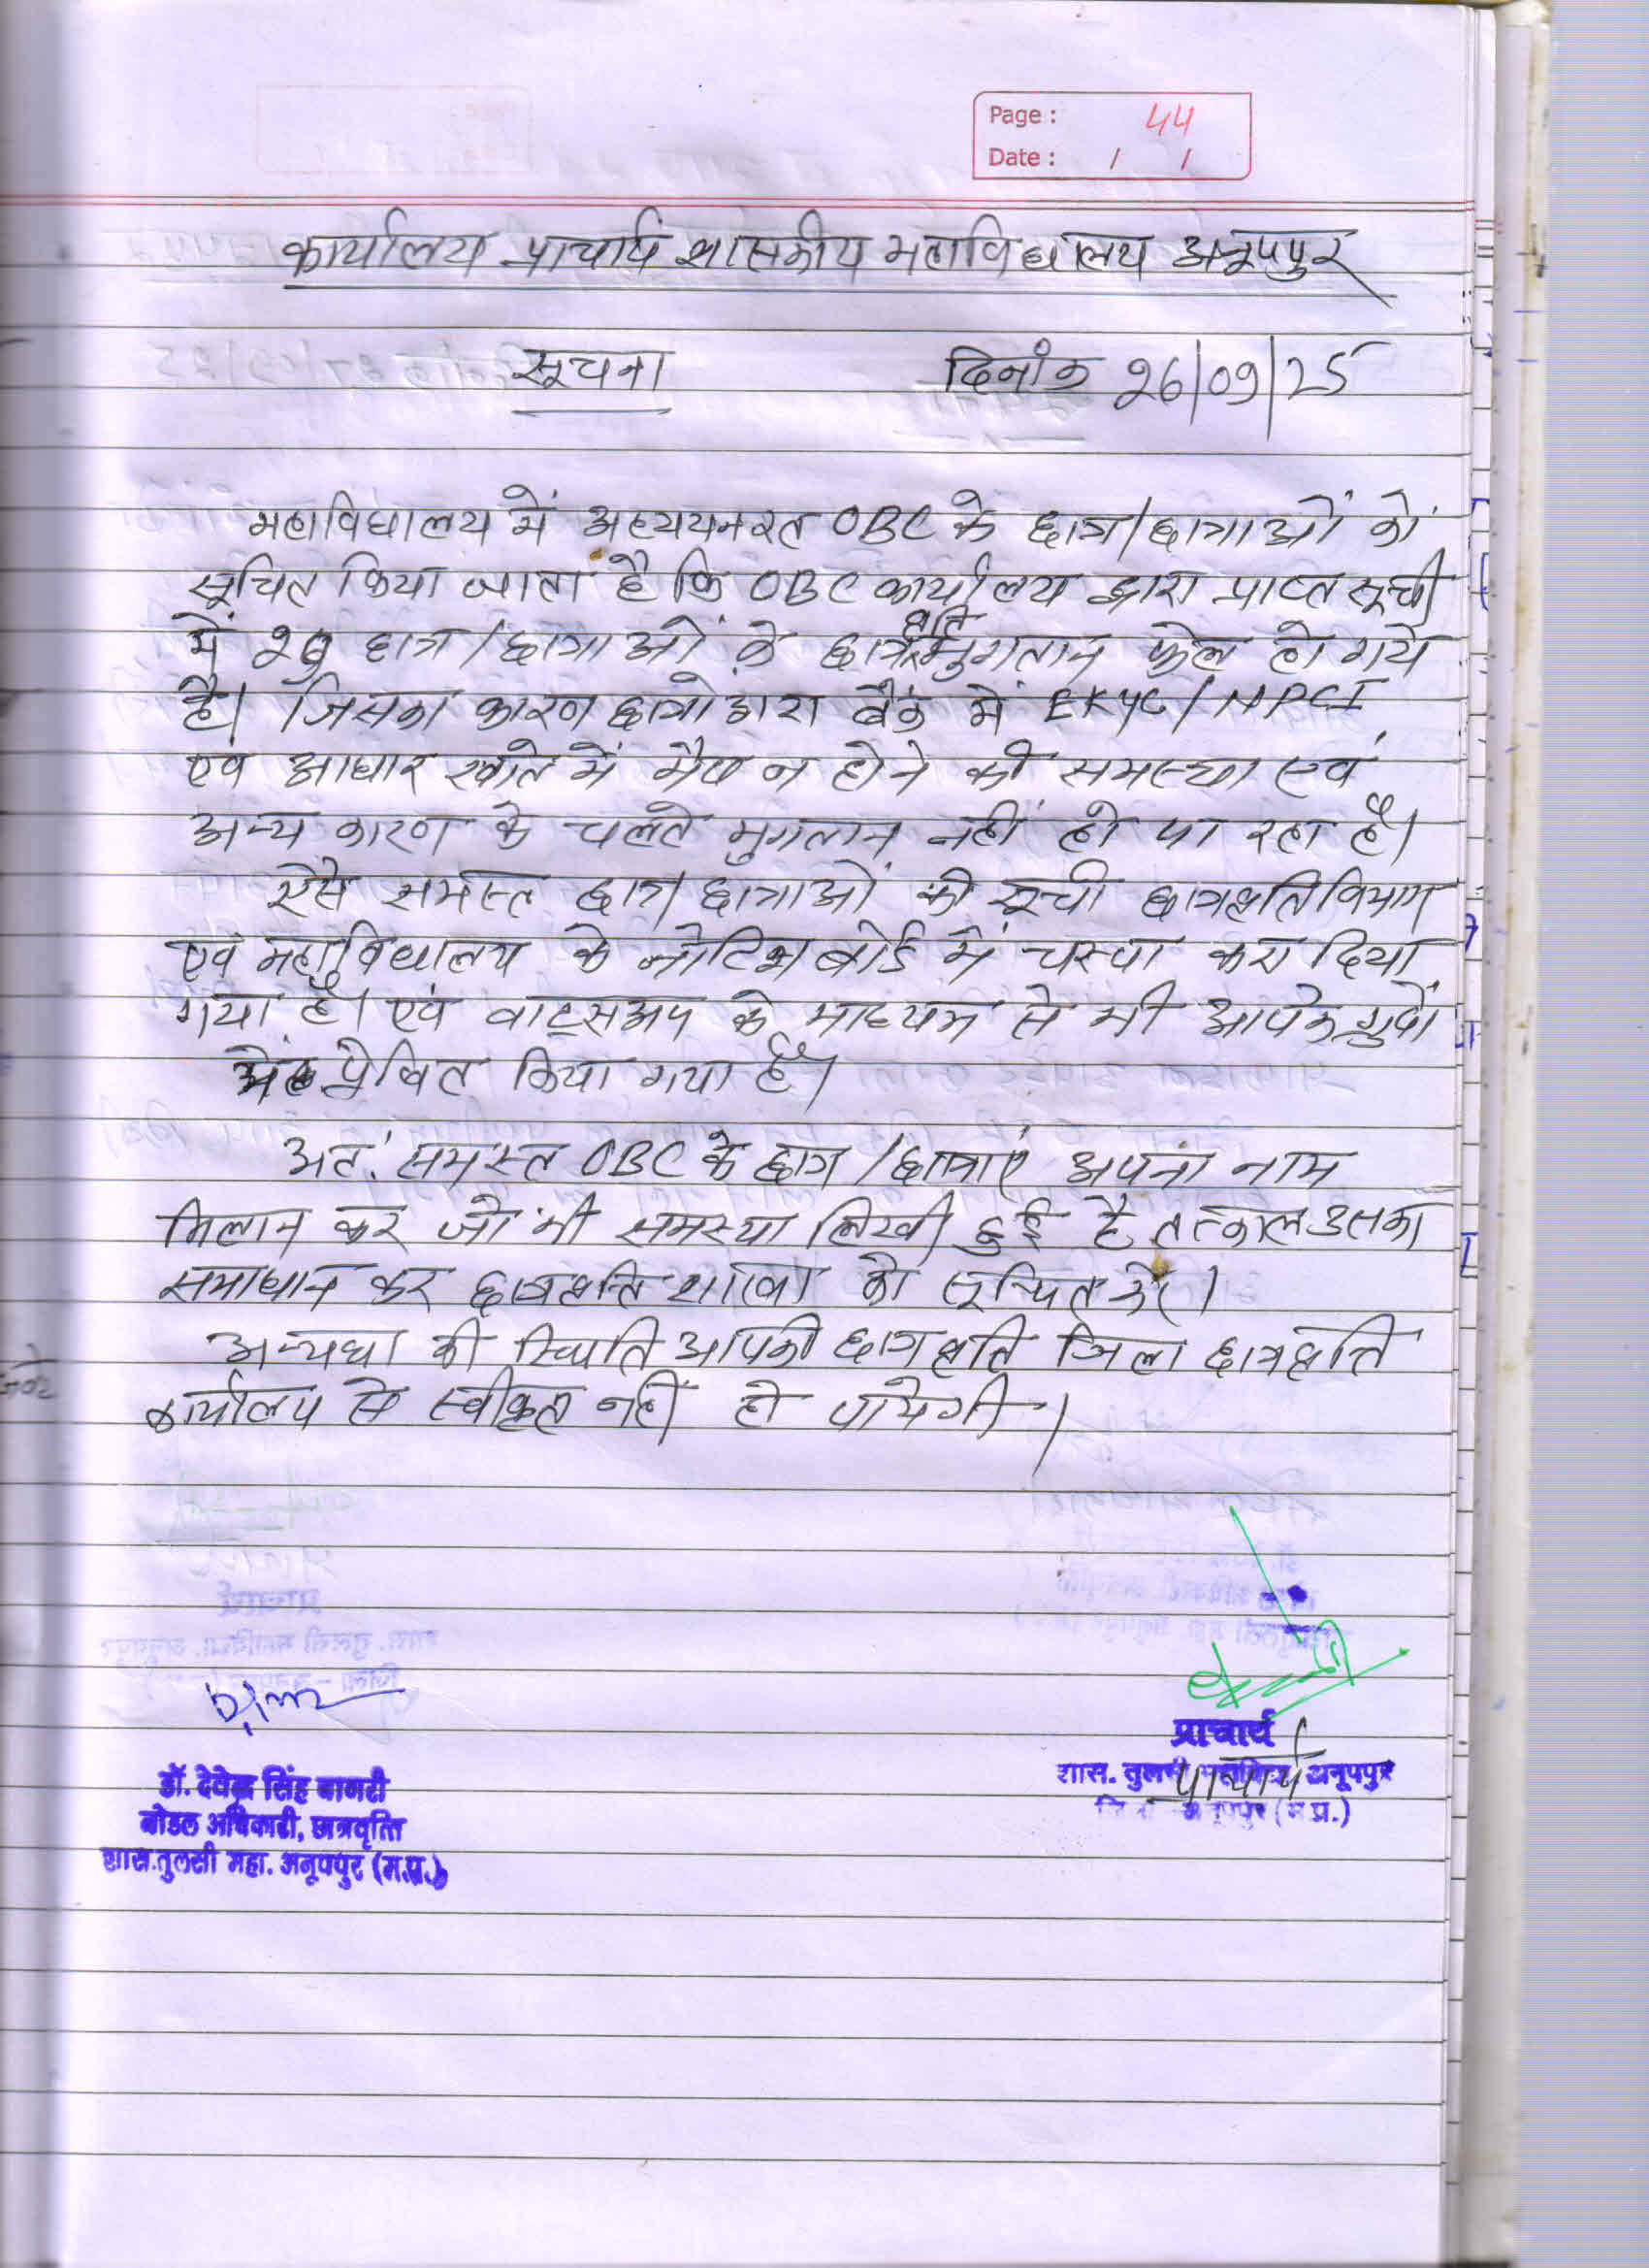 Page : 44
Date : / /
कार्यालय प्राचार्य शासकीय महाविद्यालय अनूपपुर
सूचना दिनांक 26/09/25
महाविद्यालय में अध्ययनरत OBC के छात्र/छात्राओं को
सूचित किया जाता है कि OBC कार्यालय द्वारा प्राप्त सूची
में छात्र/छात्राओं के छात्रवृत्ति भुगतान फेल हो गये
है। जिसका कारण छात्रो द्वारा बैंक में EKYC/NPCI
एवं आधार खाते में मैप न होने की समस्या एवं
अन्य कारण के चलते भुगतान नहीं हो पा रहा है।
ऐसे समस्त छात्र/छात्राओं की सूची छात्रवृत्ति विभाग
एवं महाविद्यालय के नोटिश बोर्ड में चस्पा करा दिया
गया है। एवं वाट्सअप के माध्यम से भी आपके ग्रुपों
में प्रेषित किया गया है।
अतः समस्त OBC के छात्र/छात्राएं अपना नाम
मिलान कर जो भी समस्या लिखी हुई है तत्काल उसका
समाधान कर छात्रवृत्ति शाखा को सूचित करें।
अन्यथा की स्थिति आपकी छात्रवृत्ति जिला छात्रवृत्ति
कार्यालय से स्वीकृत नहीं हो पायेगी।
प्राचार्य
शास. तुलसी महाविद्या. अनूपपुर
प्राचार्य
अनूपपुर (म.प्र.)
डॉ. देवेन्द्र सिंह बागरी
नोडल अधिकारी, छात्रवृत्ति
शास.तुलसी महा. अनूपपुर (म.प्र.)